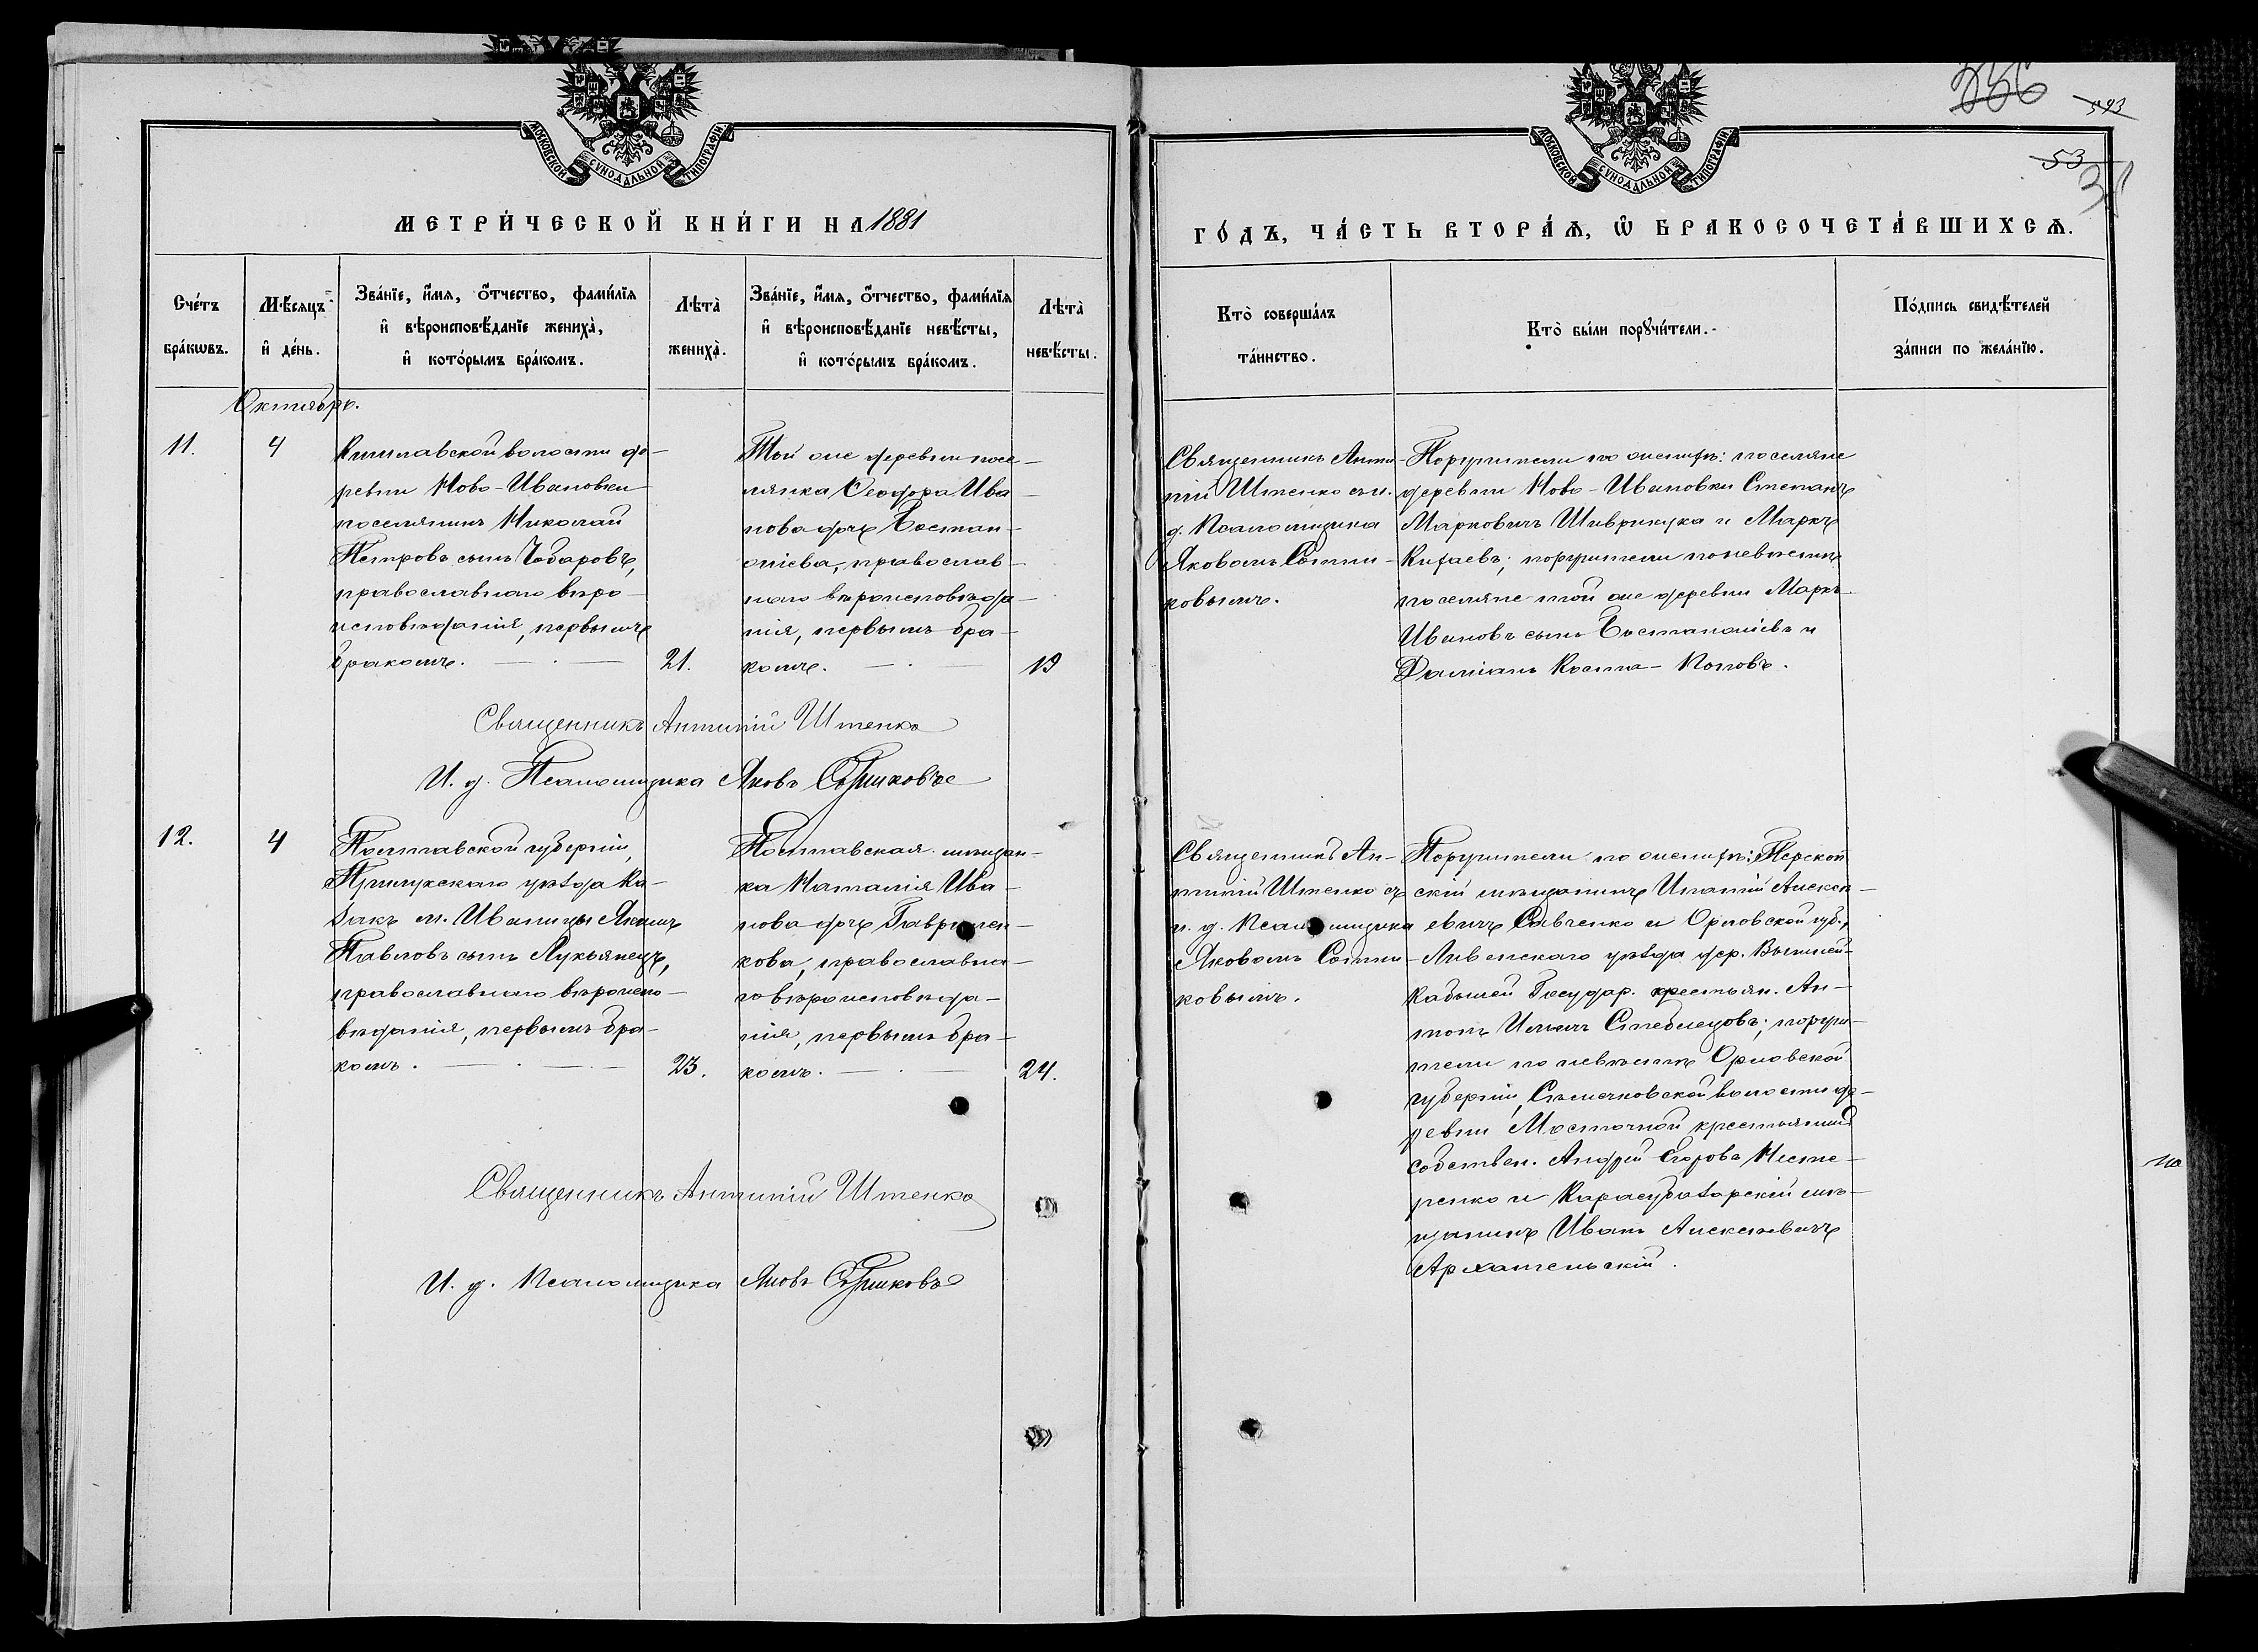 МОСКОВСКОЙ СѴНОДАЛЬНОЙ ТИПОГРАФІИ
МЕТРИ́ЧЕСКОЙ КНИ́ГИ НА 1881
Сче́тъ бра́кѡвъ.
Мѣ́сяцъ и҆ де́нь.
Зва́нїе, и҆́мѧ, ѻ҆́тчество, фами́лїѧ и҆ вѣроисповѣ́данїе жениха̀, и҆ кото́рымъ бра́комъ.
Лѣта̀ жениха̀.
Зва́нїе, и҆́мѧ, ѻ҆́тчество, фами́лїѧ и҆ вѣроисповѣ́данїе невѣ́сты, и҆ кото́рымъ бра́комъ.
Лѣта̀ невѣ́сты.
Октябрь.
11.
4
волости де-
ревни Ново-Ивановки
поселянинъ Николай
Петровъ сынъ Чобаровъ,
православнаго вѣро-
исповѣданія, первымъ
бракомъ.
21.
Той же деревни посе-
лянка Ѳеодора Ива-
нова дочь Бостан-
жіева, православ-
наго вѣроисповѣда-
нія, первымъ бра-
комъ.
19
Священникъ Антипій Штенко
И. д. Псаломщика Яковъ
12.
4
Полтавской губерніи,
Прилукскаго уѣзда Ка-
закъ м. Иваницы Якимъ
Павловъ сынъ Лукьянецъ,
православнаго вѣроиспо-
вѣданія, первымъ бра-
комъ.
23.
Полтавская мѣщан-
ка Наталія Ива-
нова дочь Гаврилен-
кова, православна-
го вѣроисповѣда-
нія, первымъ бра-
комъ.
24.
Священникъ Антипій Штенко
И. д. Псаломщика Яковъ
МОСКОВСКОЙ СѴНОДАЛЬНОЙ ТИПОГРАФІИ
593
53
ГО́ДЪ, ЧА́СТЬ ВТОРА́Ѧ, Ѽ БРАКОСОЧЕТА́ВШИХСѦ.
Кто̀ соверша́лъ та́инство.
Кто̀ бы́ли порꙋчи́тели.
По́дпись свидѣ́телей за́писи по жела́нїю.
Священникъ Анти-
пій Штенко съ и.
д. Псаломщика
Яковомъ
ковымъ.
Поручители по женихѣ: поселяне
деревни Ново-Ивановки Степанъ
Марковичъ и Маркъ
поручители по невѣстѣ
поселяне той же деревни Маркъ
Ивановъ сынъ Бостанжіевъ и
Даміанъ Коста-Поповъ.
Священникъ Ан-
типій Штенко съ
и. д. Псаломщика
Яковомъ
ковымъ.
Поручители по женихѣ:
скій мѣщанинъ Ипатій Алексѣ-
евичъ Савченко и Орловской губ.,
Ливенскаго уѣзда дер.
Государ. крестьян. Ан-
тонъ поручи-
тели по невѣстѣ Орловской
губерніи, волости де-
ревни крестьянинъ
собствен. Андрей Егоровъ Несте-
ренко и Карасубазарскій мѣ-
щанинъ Иванъ Алексѣевичъ
Архангельскій.